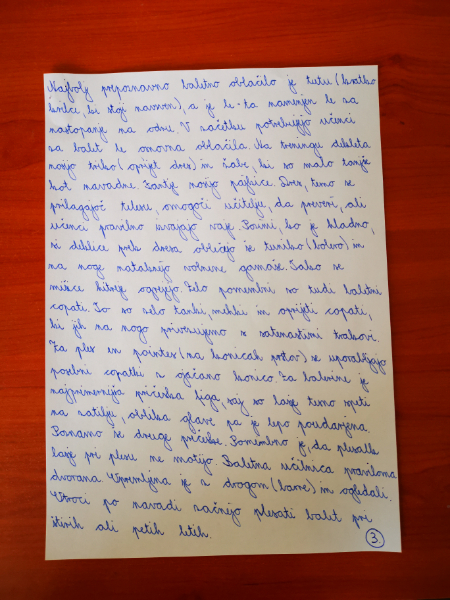 Najbolj prepoznavno baletno oblačilo je tutu (kratko
krilce, ki stoji navzven), a je le-ta namenjen le za
nastopanje na odru. V začetku potrebujejo učenci
za balet le osnovna oblačila. Na treningu dekleta
nosijo triko (oprijet dres) in žabe, ki so malo tanjše
kot navadne. Fantje nosijo pajkice. Dres, tesno se
prilagajoč telesu, omogoči učitelju, da preveri, ali
učenci pravilno izvajajo vaje. Pozimi, ko je hladno,
si deklice prek dresa oblečejo še tuniko (bolero) in
na noge nataknejo volnene gamaše. Tako se
mišice hitreje ogrejejo. Zelo pomembni so tudi baletni
copati. To so zelo tanki, mehki in oprijeti copati,
ki jih na nogo privezujemo s satenastimi trakovi.
Za ples en pointes (na konicah prstov) se uporabljajo
posebni copatki z ojačano konico. Za balerine je
najprimernejša pričeska figa, saj so lasje tesno speti
na zatilju, oblika glave pa je lepo poudarjena.
Poznamo še druge pričeske. Pomembno je, da plesalke
lasje pri plesu ne motijo. Baletna učilnica praviloma
dvorana opremljena je z drogom (barre) in ogledali.
Otroci po navadi začnejo plesati balet pri
štirih ali petih letih.
3.